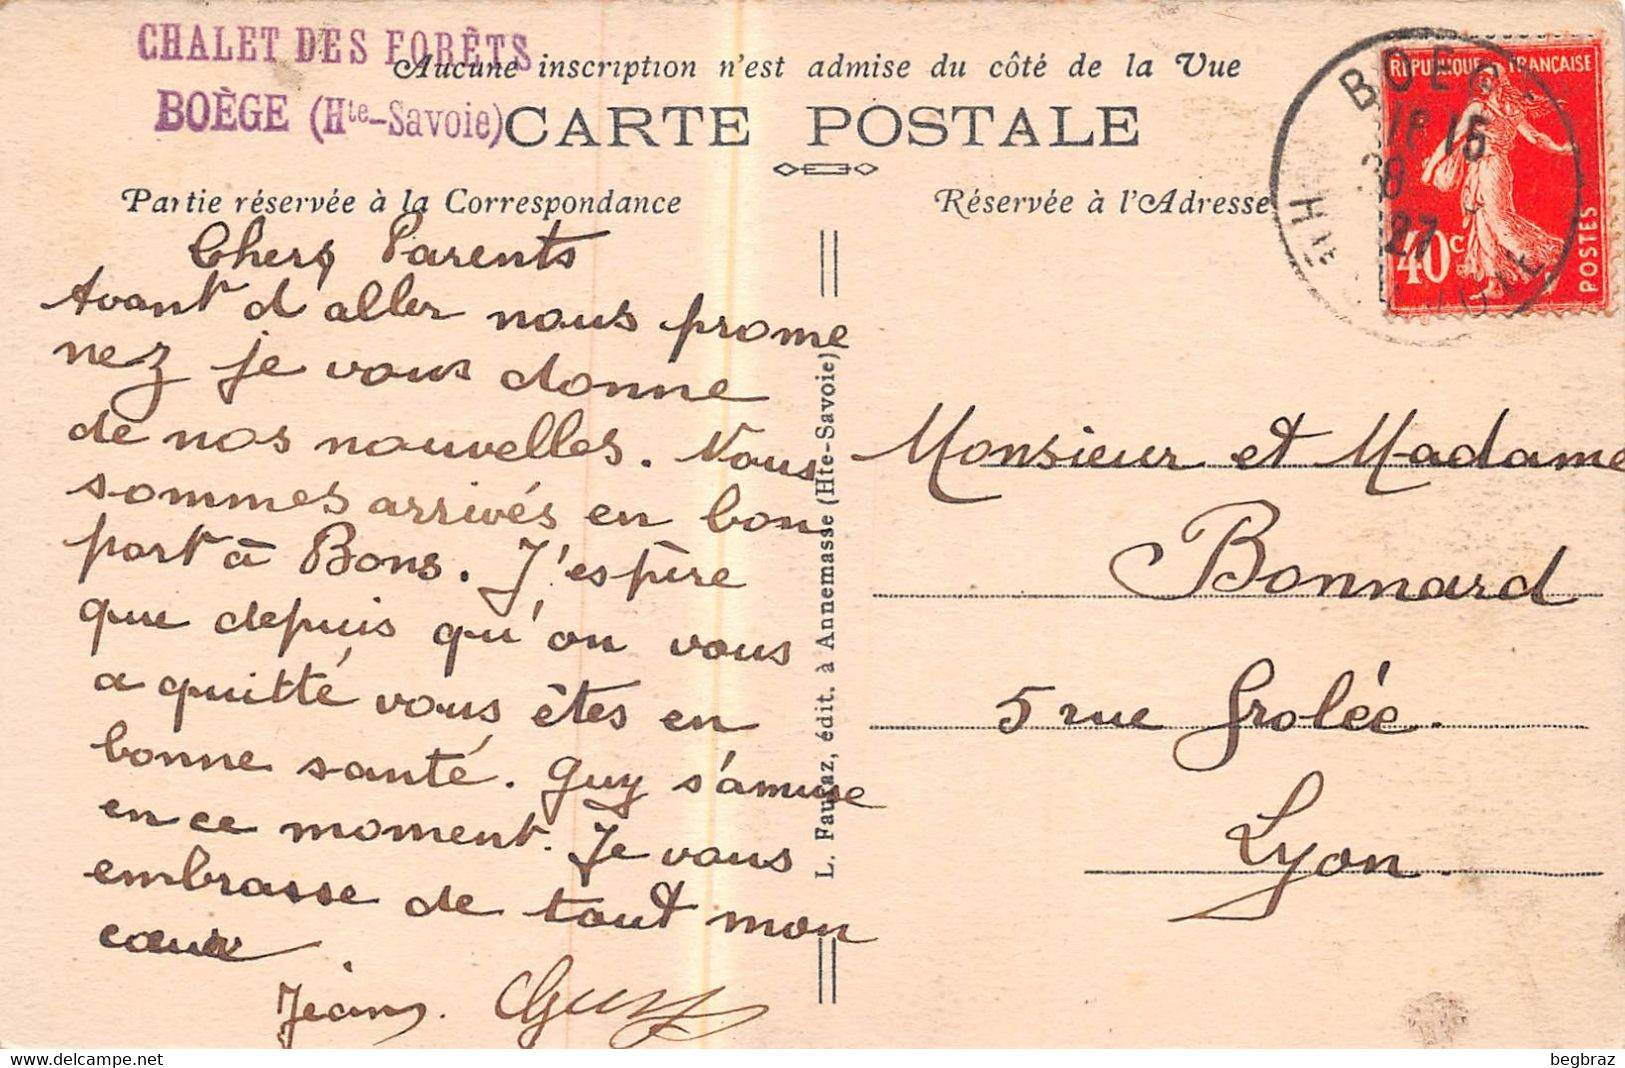 CHALET DES FORÊTS
BOÈGE (Hte-Savoie)
Aucune inscription n'est admise du côté de la Vue
CARTE POSTALE
Partie réservée à la Correspondance
Réservée à l'Adresse
BOEGE
15
8
27
Hte SAVOIE
REPUBLIQUE FRANÇAISE
40c
POSTES
Chers Parents
Avant d'aller nous prome
nez je vous donne
de nos nouvelles. Nous
sommes arrivés en bon
port à Bons. J'espère
que depuis qu'on vous
a quitté vous êtes en
bonne santé. Guy s'amuse
en ce moment. Je vous
embrasse de tout mon
cœur.
Jean. Guy
L. Fauraz, édit. à Annemasse (Hte-Savoie)
Monsieur et Madame
Bonnard
5 rue Grolée.
Lyon.
www.delcampe.net
begbraz